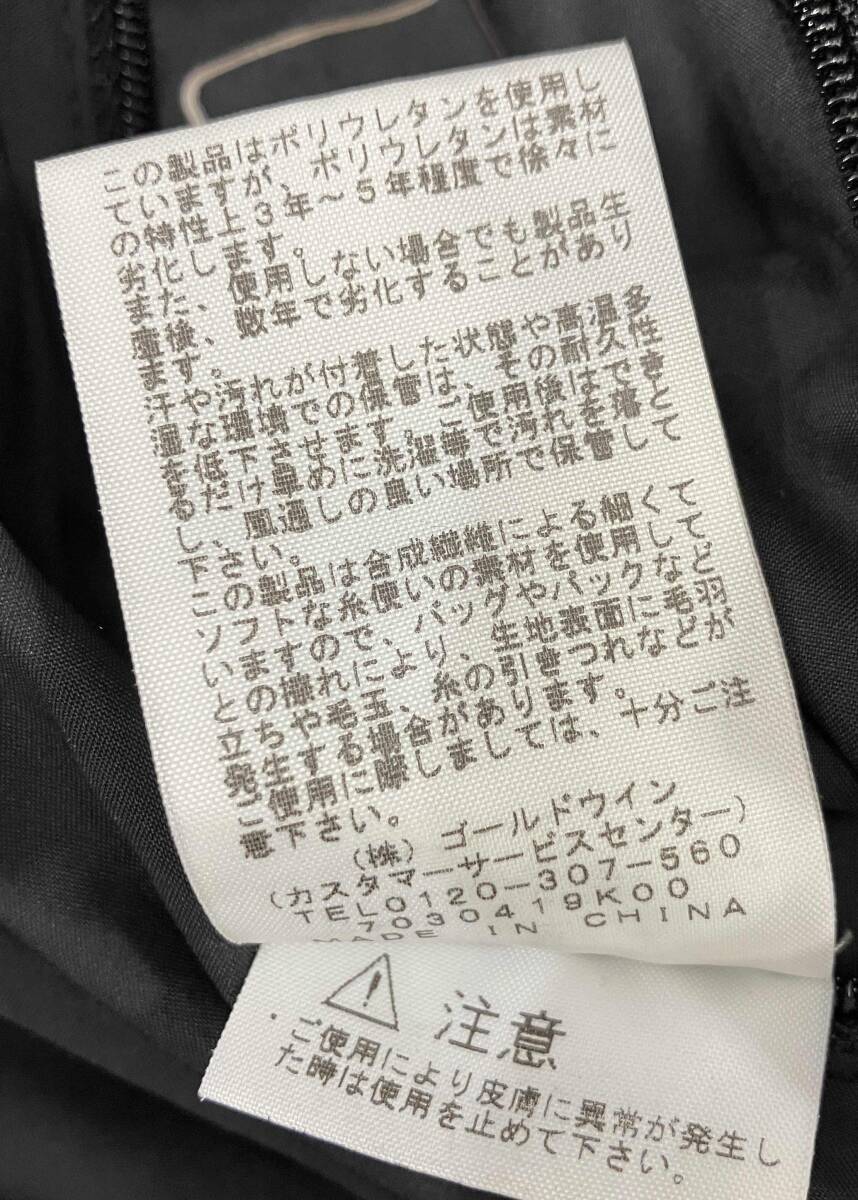 この製品はポリウレタンを使用し
ていますが、ポリウレタンは素材
の特性上3年～5年程度で徐々に
劣化します。
また、使用しない場合でも製品生
産後、数年で劣化することがあり
ます。
汗や汚れが付着した状態や高温多
湿な環境での保管は、その耐久性
を低下させます。ご使用後はでき
るだけ早めに洗濯等で汚れを落と
し、風通しの良い場所で保管して
下さい。
この製品は合成繊維による細くて
ソフトな糸使いの素材を使用して
いますので、バッグやパックなど
との擦れにより、生地表面に毛羽
立ちや毛玉、糸の引きつれなどが
発生する場合があります。
ご使用に際しましては、十分ご注
意下さい。
(株) ゴールドウイン
(カスタマーサービスセンター)
TEL0120-307-560
7030419K00
MADE IN CHINA
注意
・ご使用により皮膚に異常が発生し
た時は使用を止めて下さい。